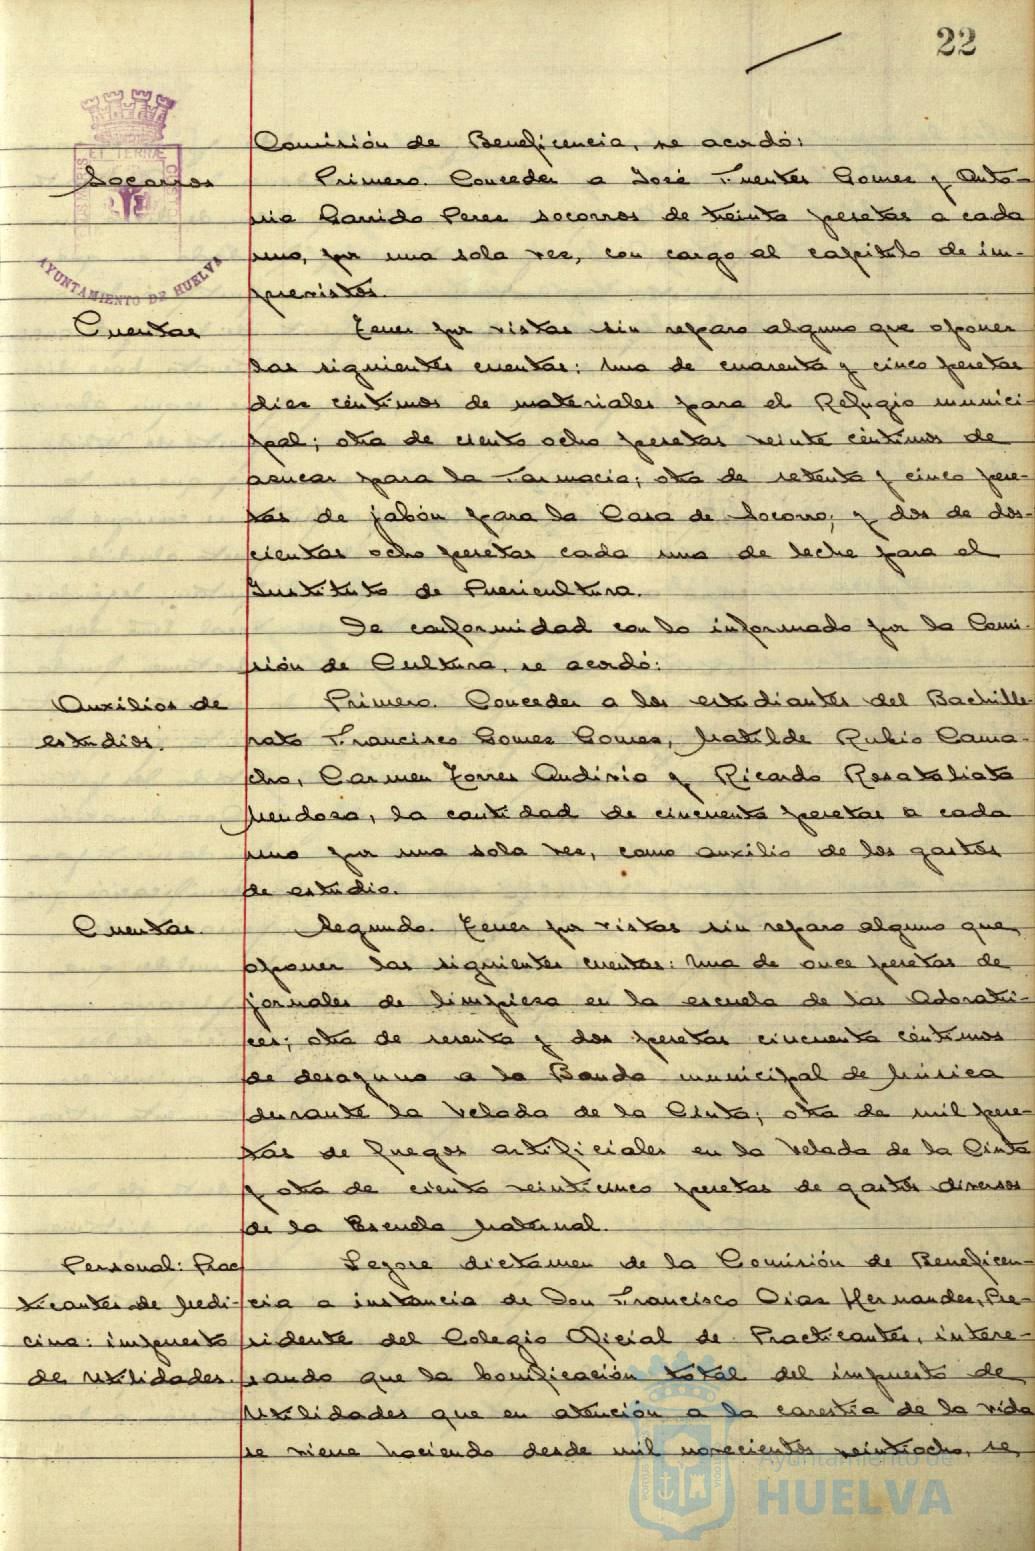 22
Comisión de Beneficencia, se acordó:
Socorros
Primero. Conceder a José Fuentes Gomez y Anto-
nia Garrido Perez socorros de treinta pesetas a cada
uno, por una sola vez, con cargo al capitulo de im-
previstos.
AYUNTAMIENTO DE HUELVA
Cuentas
Tener por vistas sin reparo alguno que oponer
las siguientes cuentas: una de cuarenta y cinco pesetas
diez céntimos de materiales para el Refugio munici-
pal; otra de ciento ocho pesetas veinte céntimos de
azucar para la Farmacia; otra de setenta y cinco pese-
tas de jabón para la Casa de Socorro; y dos de dos-
cientas ocho pesetas cada una de leche para el
Instituto de Puericultura.
De conformidad con lo informado por la Comi-
sión de Cultura, se acordó:
Auxilios de
estudios.
Primero. Conceder a los estudiantes del Bachille-
rato Francisco Gomez Gomez, Matilde Rubio Cama-
cho, Carmen Torres Andivia y Ricardo Rosa
Mendoza, la cantidad de cincuenta pesetas a cada
uno por una sola vez, como auxilio de los gastos
de estudio.
Cuentas.
Segundo. Tener por vistas sin reparo alguno que
oponer las siguientes cuentas: una de once pesetas de
jornales de limpieza en la escuela de las Adoratri-
ces; otra de sesenta y dos pesetas cincuenta céntimos
de desayuno a la Banda municipal de Música
durante la Velada de la Cinta; otra de mil pese-
tas de fuegos artificiales en la Velada de la Cinta
y otra de ciento veinticinco pesetas de gastos diversos
de la Escuela Maternal.
Personal: Prac
ticantes de Medi-
cina: impuesto
de utilidades.
Leyose dictamen de la Comisión de Beneficen-
cia a instancia de Don Francisco Diaz Hernandez, Pre-
sidente del Colegio Oficial de Practicantes, intere-
sando que la bonificación total del impuesto de
utilidades que en atención a la carestia de la vida
se viene haciendo desde mil novecientos veintiocho, se
Ayuntamiento de
HUELVA